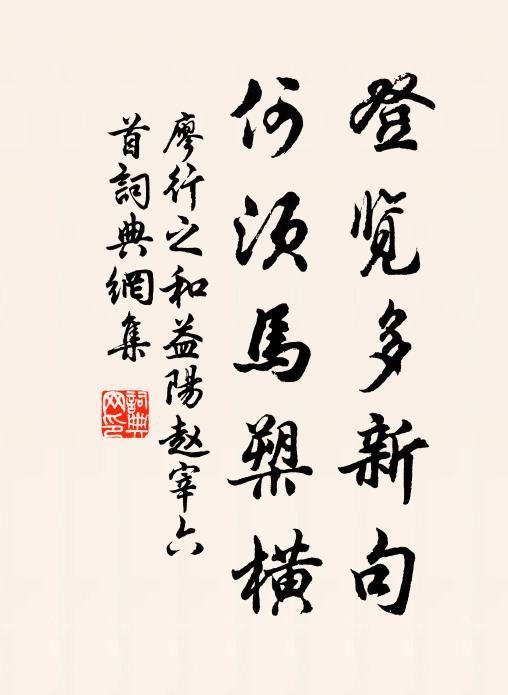 登览多新句
何须馬槊橫
廖行之和益陽赵宰六
首詞典網集
詞典
网印